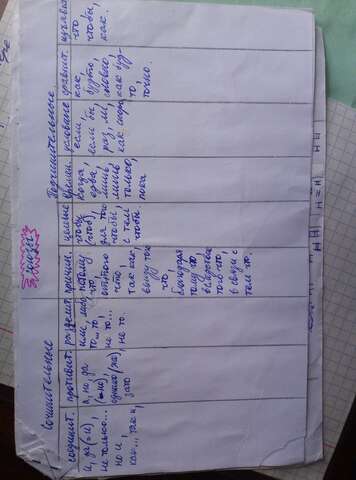 Союзы
Сочинительные
Подчинительные
соединит.
и, да (=и),
не только...
но и,
как... так и,
противит.
а, но, да
(=но),
однако (же),
зато
разделит.
или, либо,
то... то,
не то...
не то.
причин.
потому
что,
оттого
что,
так как,
ввиду того
что,
благодаря
тому что,
вследствие
того что,
в связи с
тем что.
целевые
чтобы
(чтоб),
для того
чтобы,
с тем
чтобы
времен.
когда,
едва,
лишь,
лишь
только,
пока
условные
если,
если бы,
раз, ли,
как скоро
сравнит.
как,
будто,
словно,
как буд-
то,
точно.
изъяснит.
что,
чтобы,
как.